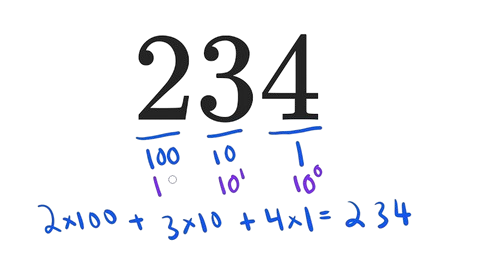 234
100 10 1
1 10¹ 10⁰
2×100 + 3×10 + 4×1 = 234